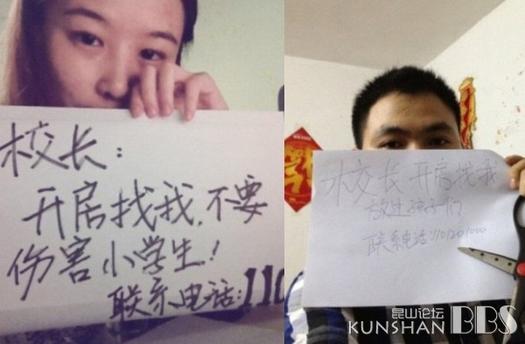 校长：
开房找我，不要
伤害小学生！
联系电话：110
校长 开房找我
放过孩子们
联系电话：
昆山论坛
KUNSHAN BBS